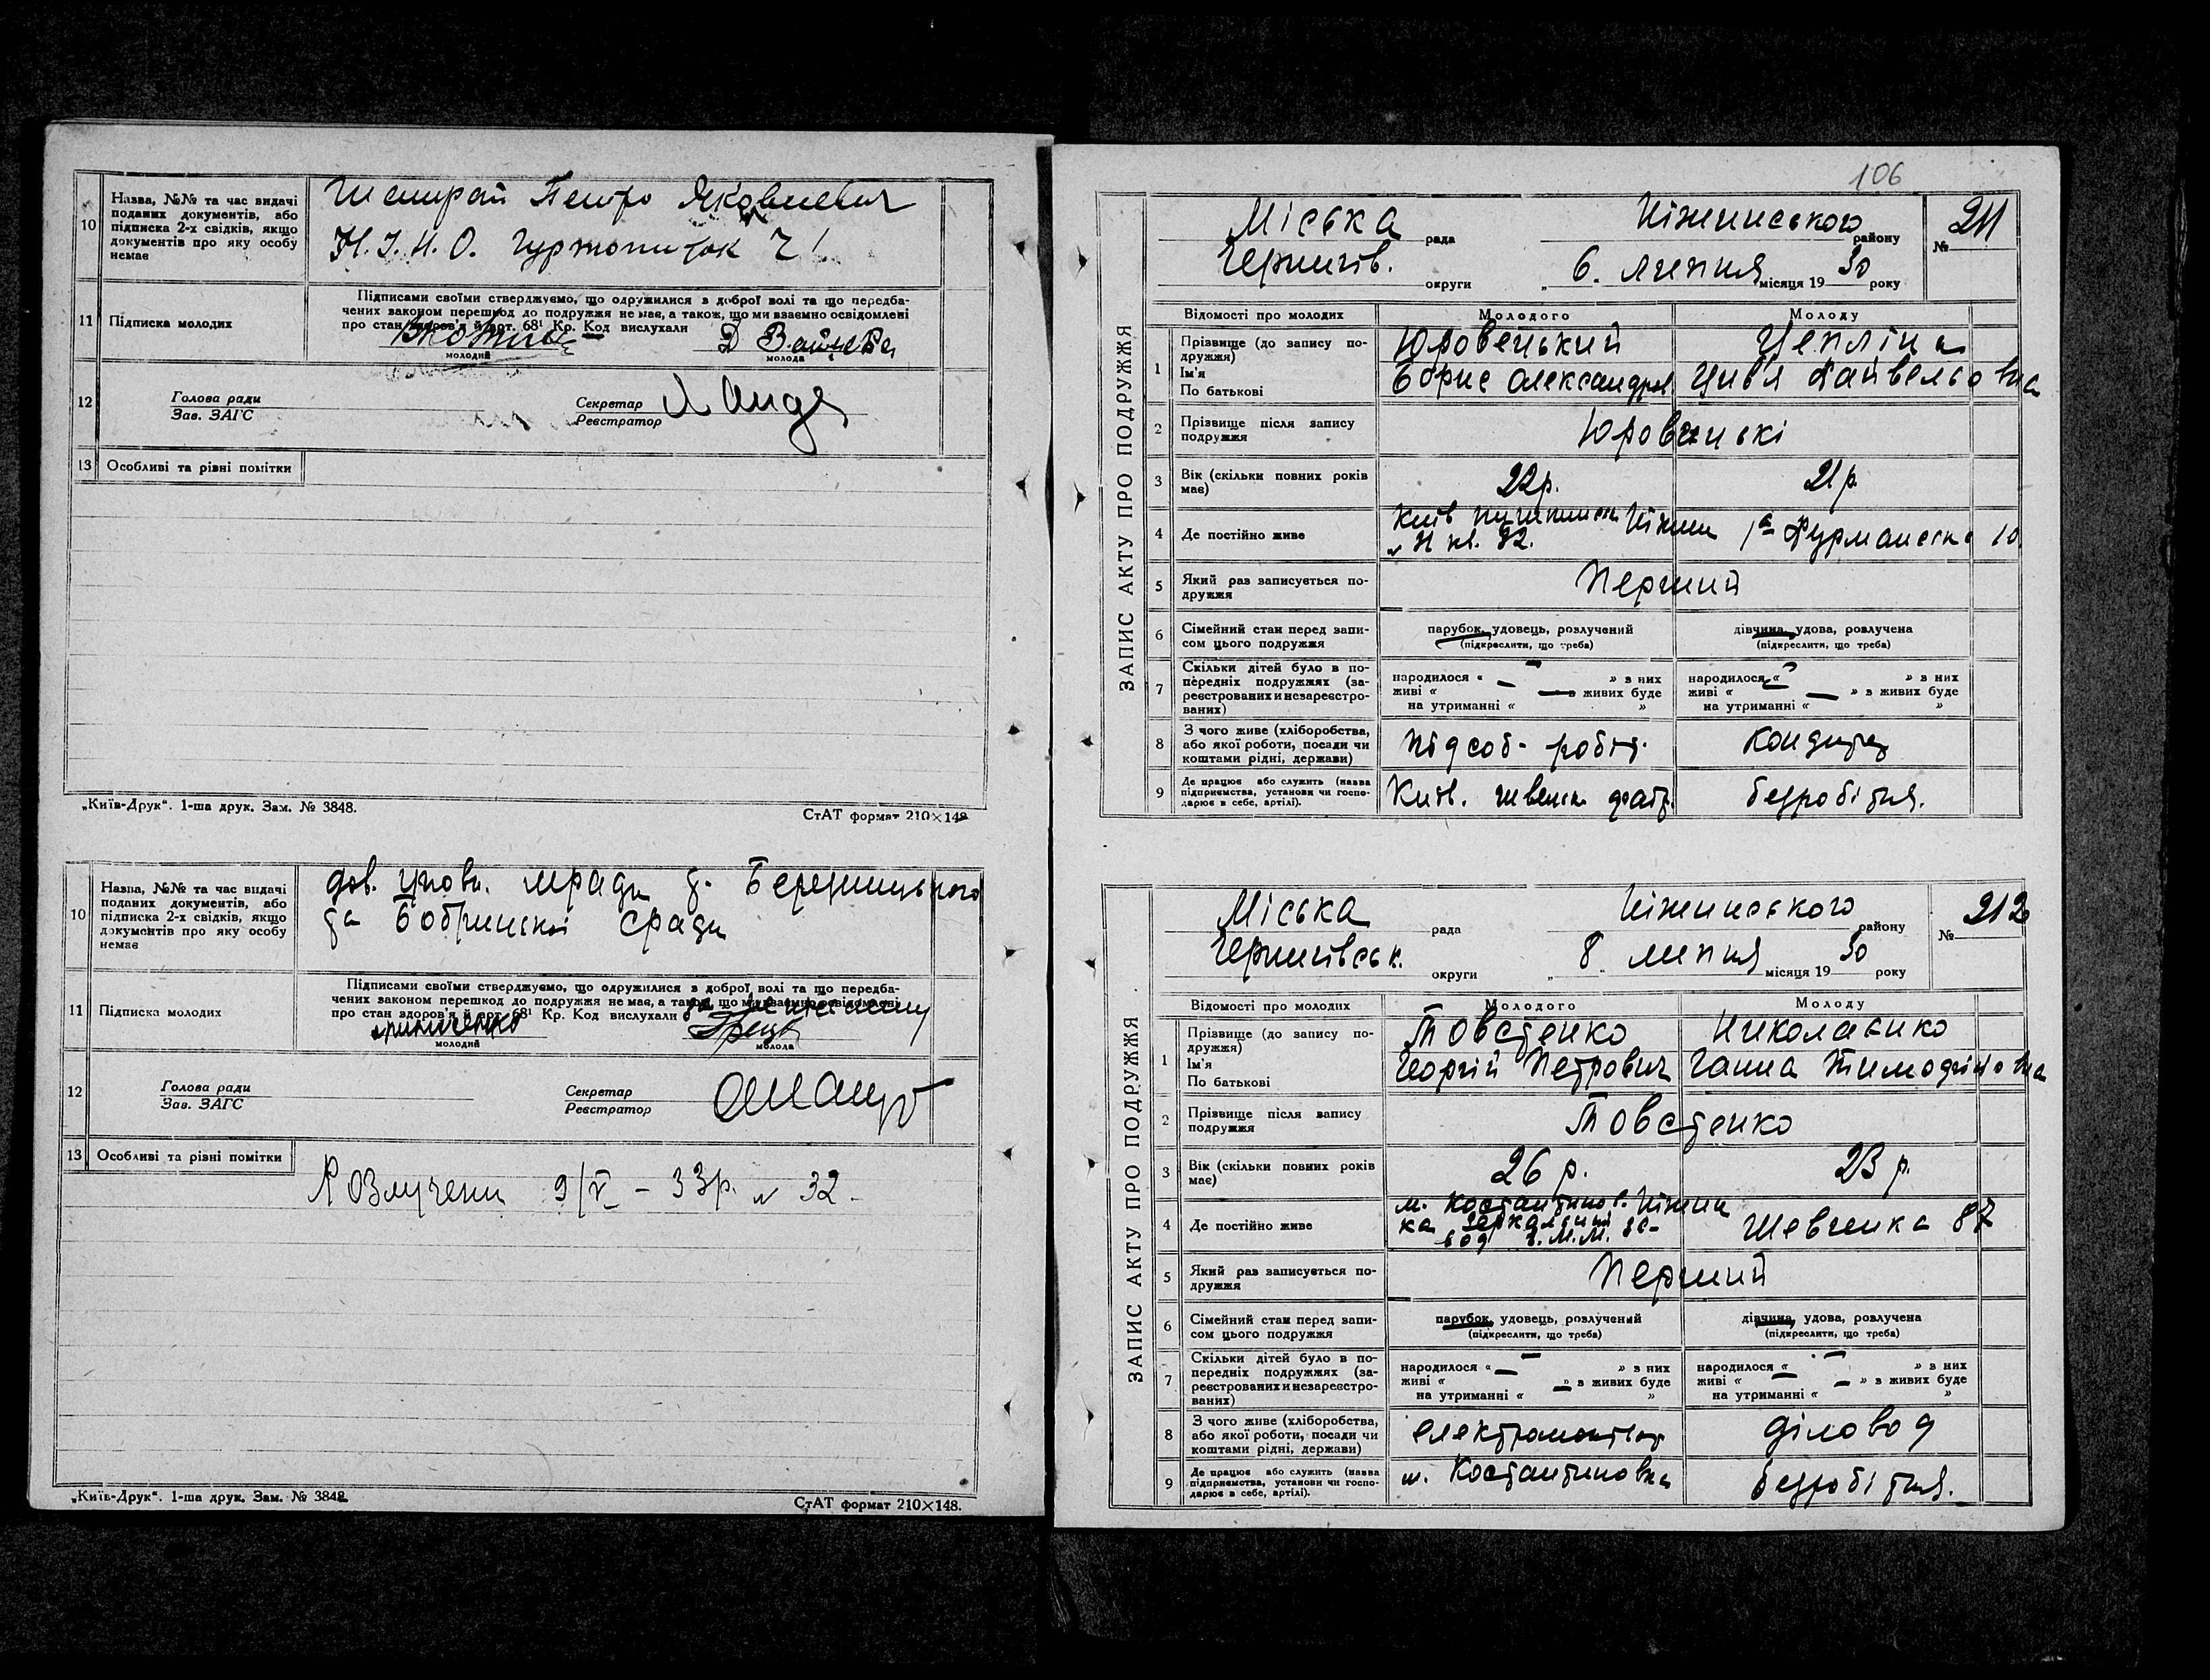 10 Назва, №№ та час видачі
поданих документів, або
підписка 2-х свідків, якщо
документів про яку особу
немає
Шемирай Петро Яковлевич
Н.І.Н.О. Гуртожиток
11 Підписка молодих
Підписами своїми стверджуємо, що одружилися з доброї волі та що передба-
чених законом перешкод до подружжя не має, а також, що ми взаємно освідомлені
про стан здоров'я й арт. 68¹ Кр. Код вислухали
молодий молода
12 Голова ради
Зав. ЗАГС
Секретар
Реєстратор
13 Особливі та різні помітки
„Київ-Друк“. 1-ша друк. Зам. № 3848.
СтАТ формат 210×148
10 Назва, №№ та час видачі
поданих документів, або
підписка 2-х свідків, якщо
документів про яку особу
немає
дов. мради
та Бобрицької сради
11 Підписка молодих
Підписами своїми стверджуємо, що одружилися з доброї волі та що передба-
чених законом перешкод до подружжя не має, а також, що ми взаємно освідомлені
про стан здоров'я й арт. 68¹ Кр. Код вислухали
молодий молода
12 Голова ради
Зав. ЗАГС
Секретар
Реєстратор
13 Особливі та різні помітки
Розлучени 9/V – 33р. № 32.
„Київ-Друк“. 1-ша друк. Зам. № 3848
СтАТ формат 210×148.
106
ЗАПИС АКТУ ПРО ПОДРУЖЖЯ
Міська рада Ніжинського району № 211
Чернигів. округи „6„ липня місяця 1930 року
Відомості про молодих Молодого Молоду
1 Прізвище (до запису по-
дружжя)
Ім'я
По батькові
Юровецький Цепліна
Борис Олександров Цивʼя Файвельовна
2 Прізвище після запису
подружжя
3 Вік (скільки повних років
має)
22р. 21р.
4 Де постійно живе
Київ
Ніжин 1а Фурманська 10.
5 Який раз записується по-
дружжя
Перший
6 Сімейний стан перед запи-
сом цього подружжя
парубок, удовець, розлучений
(підкреслити, що треба)
дівчина, удова, розлучена
(підкреслити, що треба)
7 Скільки дітей було в по-
передніх подружжях (за-
реєстрованих и незареєстро-
ваних)
народилося « — » з них
живі « — » з живих буде
на утриманні « »
народилося « — » з них
живі « — » з живих буде
на утриманні « »
8 З чого живе (хліборобства,
або якої роботи, посади чи
коштами рідні, держави)
підсоб. робіт.
9 Де працює або служить (назва
підприємства, установи чи госпо-
дарює в себе, артілі).
Київ. швенск. фабр. безробітня.
ЗАПИС АКТУ ПРО ПОДРУЖЖЯ
Міська рада Ніжинського району № 212
Чернигівськ. округи „8„ липня місяця 1930 року
Відомості про молодих Молодого Молоду
1 Прізвище (до запису по-
дружжя)
Ім'я
По батькові
Товстенко Николаєнко
Георгій Петрович Ганна Тимофіївна
2 Прізвище після запису
подружжя
Товстенко
3 Вік (скільки повних років
має)
26 р. 23 р.
4 Де постійно живе
м. Костантинов-
ка зеркальний за-
вод
Ніжин
Шевченка 87
5 Який раз записується по-
дружжя
Перший
6 Сімейний стан перед запи-
сом цього подружжя
парубок, удовець, розлучений
(підкреслити, що треба)
дівчина, удова, розлучена
(підкреслити, що треба)
7 Скільки дітей було в по-
передніх подружжях (за-
реєстрованих и незареєстро-
ваних)
народилося « — » з них
живі « — » з живих буде
на утриманні « »
народилося « — » з них
живі « — » з живих буде
на утриманні « »
8 З чого живе (хліборобства,
або якої роботи, посади чи
коштами рідні, держави)
електромонтьор діловод
9 Де працює або служить (назва
підприємства, установи чи госпо-
дарює в себе, артілі).
м. Костантиновка безробітня.